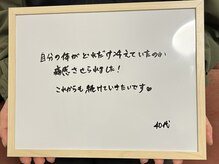 自分の体がどれだけ冷えていたのか
痛感させられました!
これからも続けていきたいです♡
40代